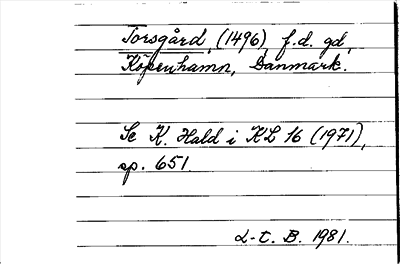 Torsgård, (1496), f.d. gd,
Köpenhamn, Danmark.
Se K. Hald i KL 16 (1971),
sp. 651.
L-t. B. 1981.